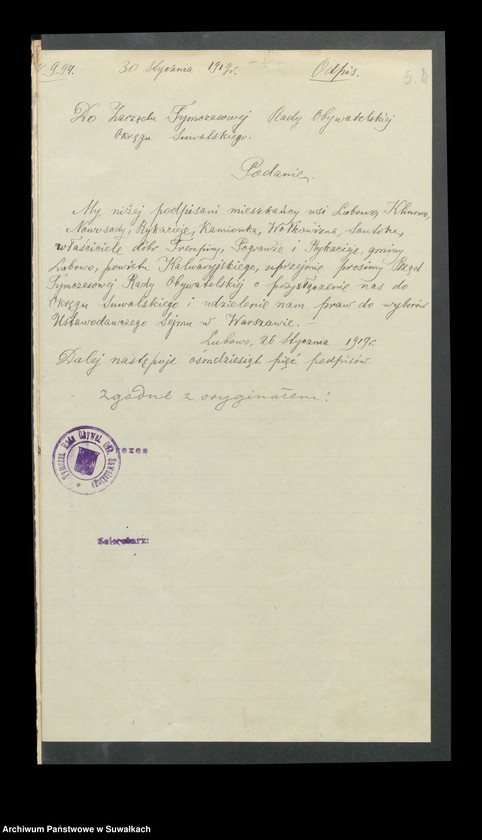 994. 30 stycznia 1919 r. Odpis.
Do Zarządu Tymczasowej Rady Obywatelskiej
Okręgu Suwalskiego.
Podanie.
My niżej podpisani mieszkańcy wsi Lubowo, Klinowo,
Nowosady, Rykacieje, Kamionka, Wołkowizna,
właściciele dóbr Trempiny, Pogranże i Rykacieje, gminy
Lubowo, powiatu Kalwaryjskiego, uprzejmie prosimy Rząd
Tymczasowej Rady Obywatelskiej o przyłączenie nas do
Okręgu Suwalskiego i udzielenie nam praw do wyborów
Ustawodawczego Sejmu w Warszawie. —
Lubowo, 26 stycznia 1919 r.
Dalej następuje ośmdziesiąt pięć podpisów.
Zgodne z oryginałem!
Tymczas. Rada Obywat. Okr. Suwalskiego
ezes
Sekretarz:
Archiwum Państwowe w Suwałkach